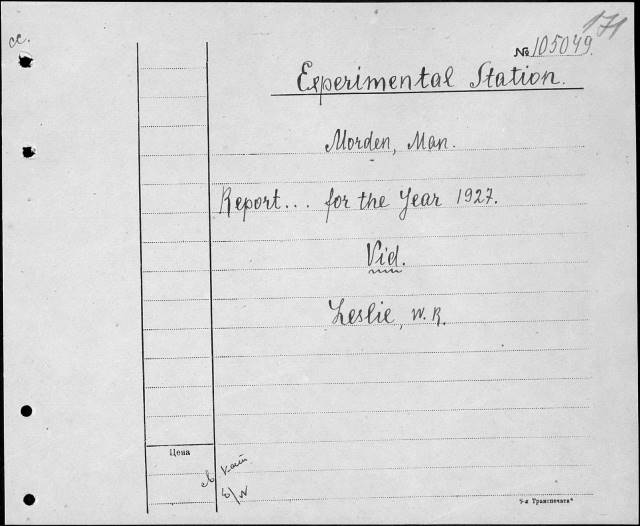 сс.
171
№ 105049
Experimental Station.
Morden, Man.
Report... for the Year 1927.
Vid.
Leslie, W. R.
Цена
5-я Транспечать"